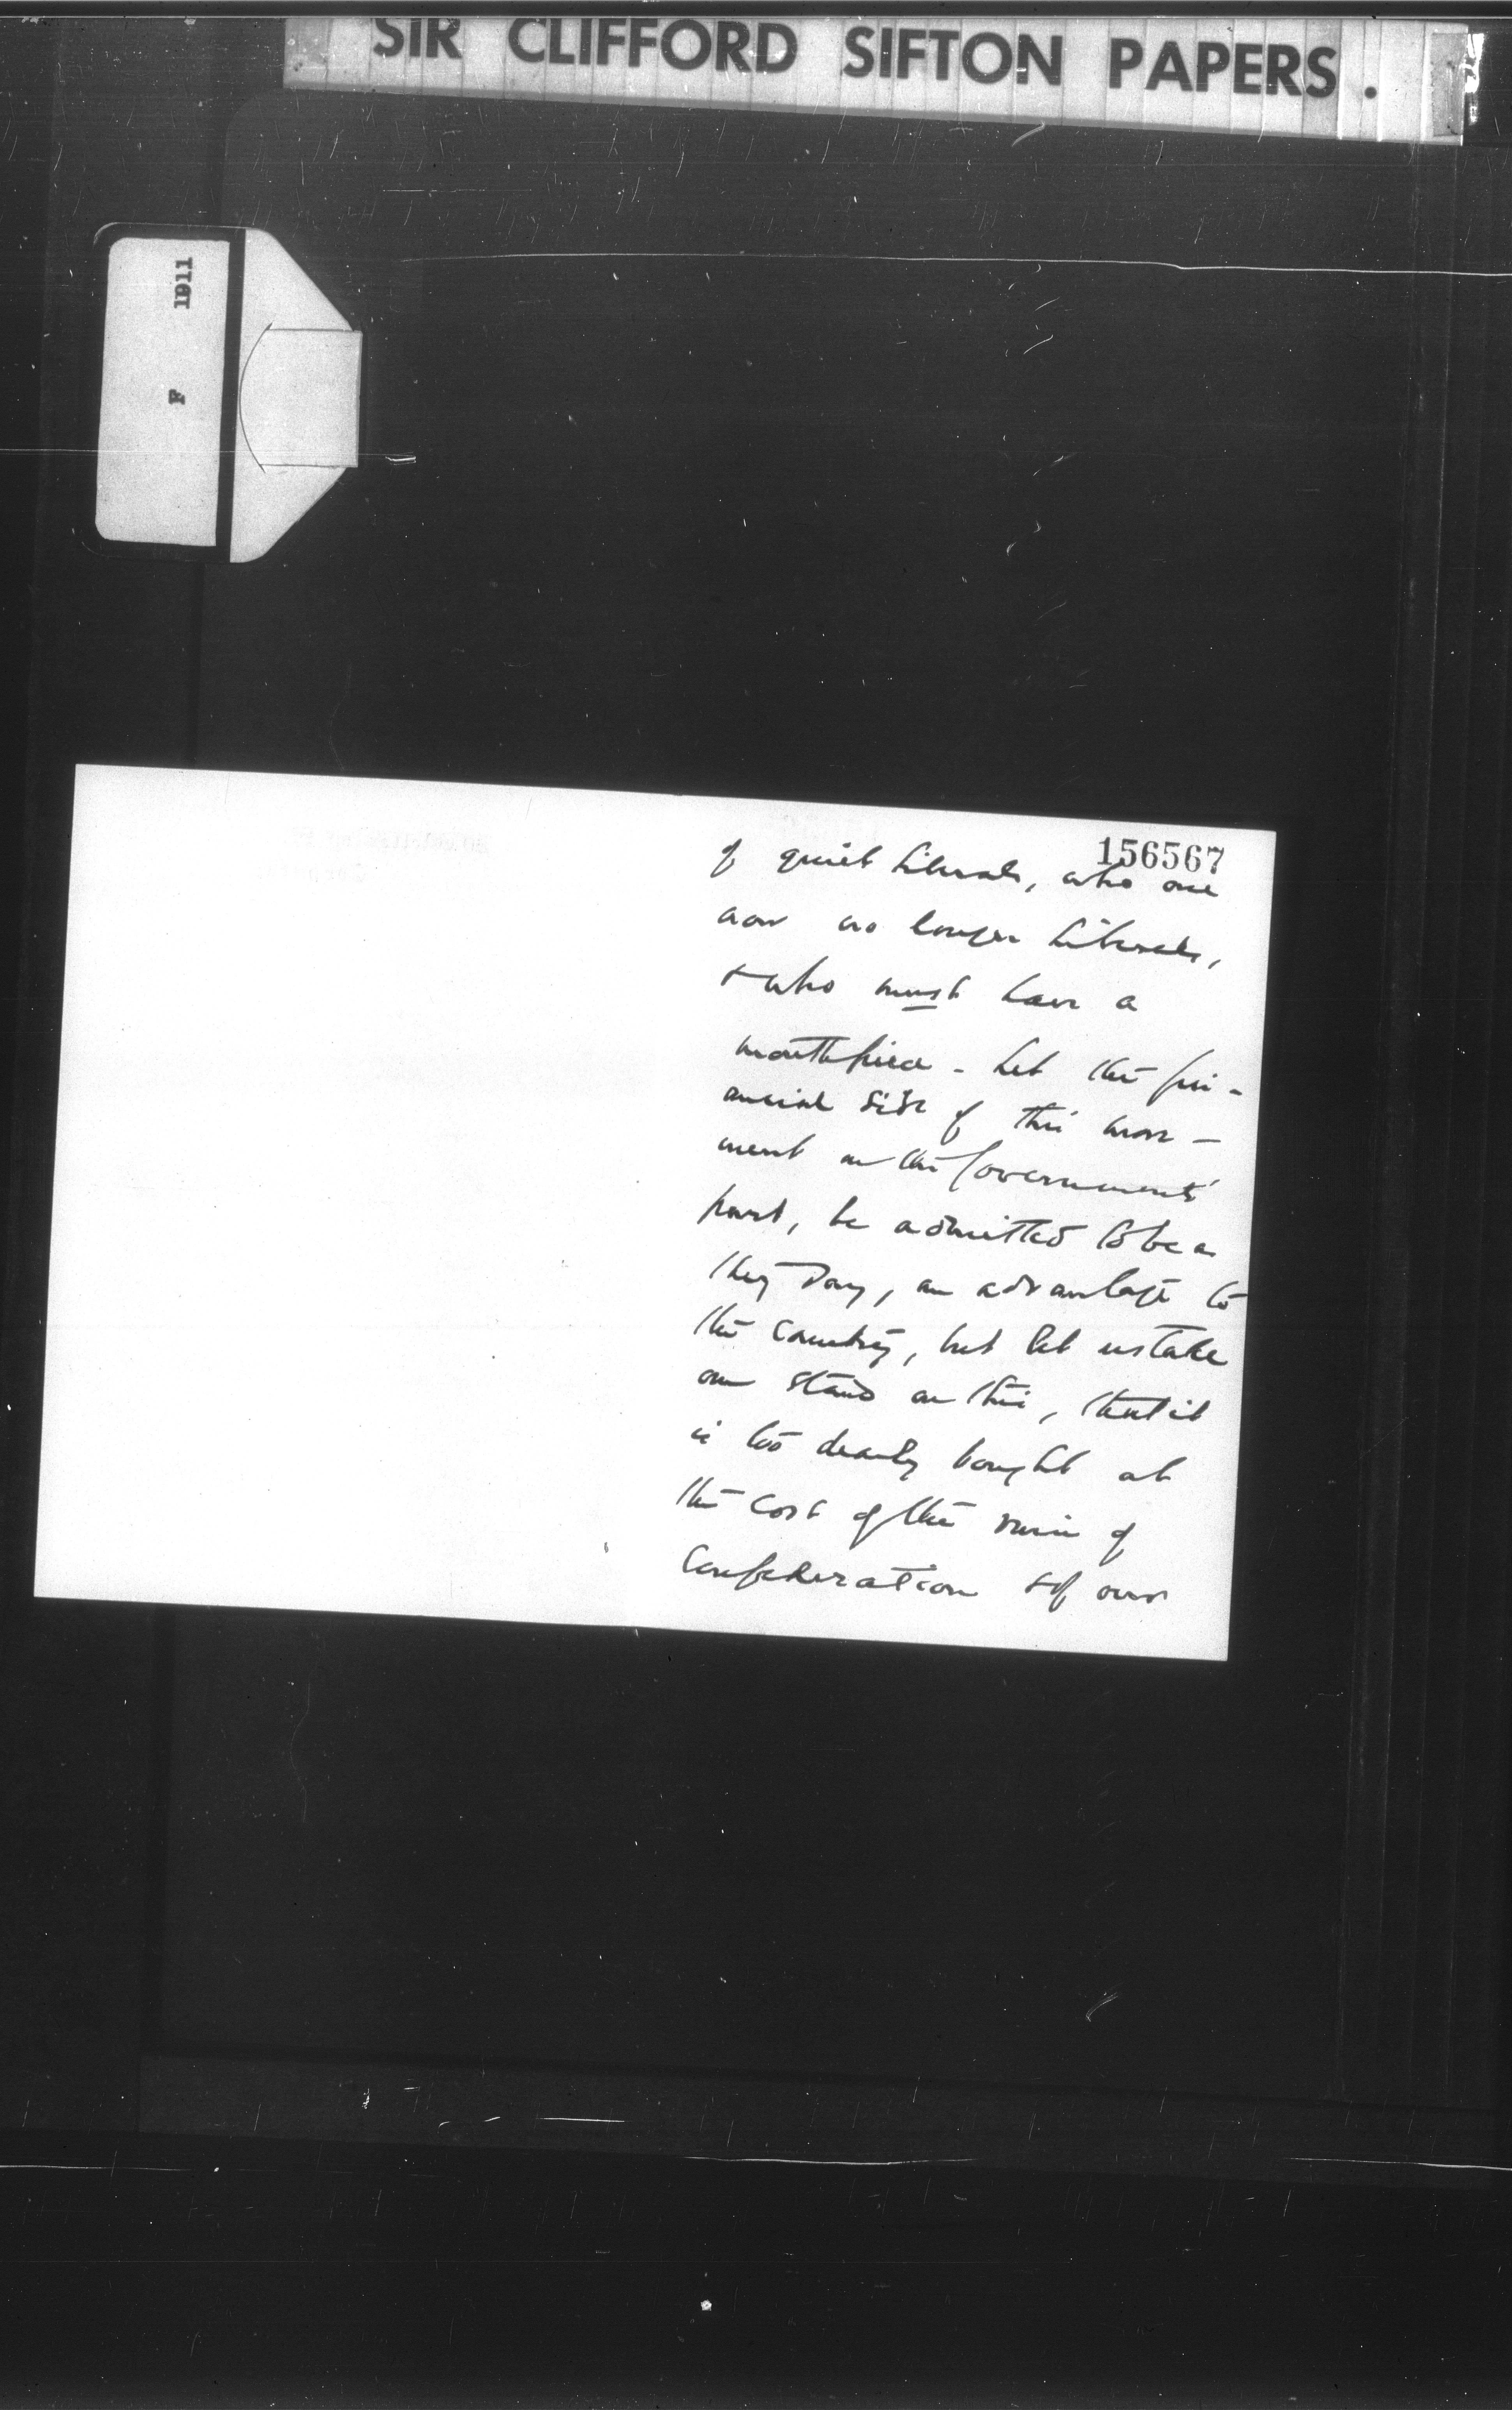 SIR CLIFFORD SIFTON PAPERS.
1911
F
156567
of quiet Liberals, who are
now no longer Liberals,
& who must have a
mouthpiece - Let the fin-
ancial side of this move-
ment on the Governments'
part, be admitted to be as
they say, an advantage to
the country, but let us take
our stand on this, that it
is too dearly bought at
the cost of the ruin of
Confederation & of our